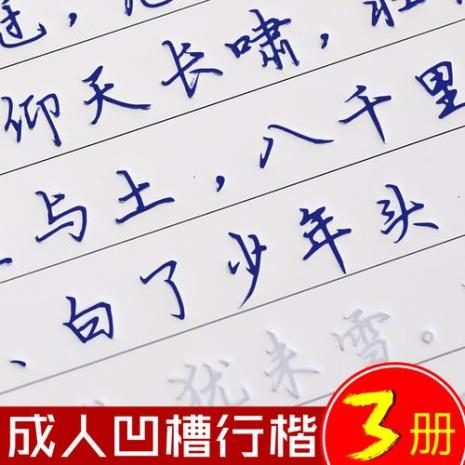 仰天长啸，壮
与土，八千里
、白了少年头
犹未雪。
成人凹槽行楷 3册